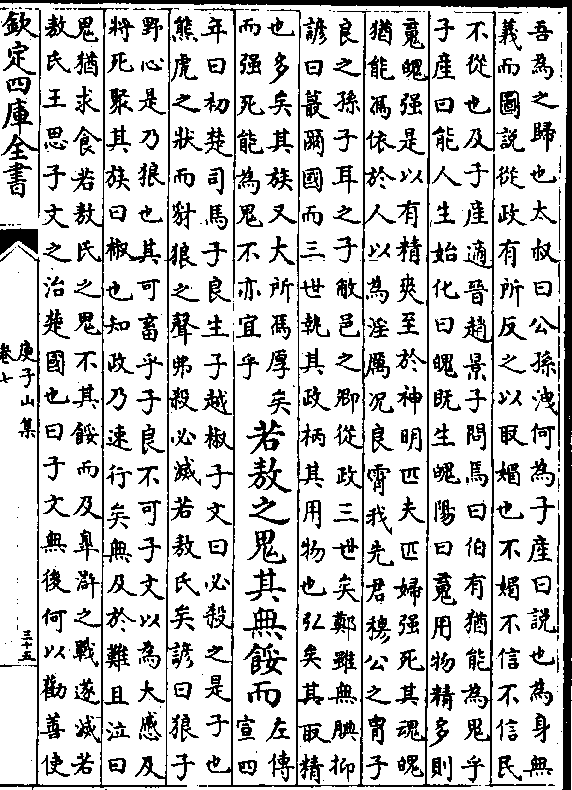 吾為之歸也太叔曰公孫洩何為子產曰說也為身無
義而圖說從政有所反之以取媚也不媚不信不信民
不從也及子產適晉趙景子問焉曰伯有猶能為鬼乎
子產曰能人生始化曰魄既生魄陽曰䰟用物精多則
䰟魄强是以有精爽至於神明匹夫匹婦强死其魂魄
猶能馮依於人以為淫厲况良霄我先君穆公之胄子
良之孫子耳之子敝邑之卿從政三世矣鄭雖無腆抑
諺曰蕞爾國而三世執其政柄其用物也弘矣其取精
也多矣其族又大所馮厚矣
而强死能為鬼不亦宜乎
若敖之鬼其無餒而
左傳
宣四
年曰初楚司馬子良生子越椒子文曰必殺之是子也
熊虎之狀而豺狼之聲弗殺必滅若敖氏矣諺曰狼子
野心是乃狼也其可畜乎子良不可子文以為大感及
將死聚其族曰椒也知政乃速行矣無及於難且泣曰
鬼猶求食若敖氏之鬼不其餒而及臯滸之戰遂滅若
敖氏王思子文之治楚國也曰子文無後何以勸善使
欽定四庫全書
庾子山集
卷七
三十五